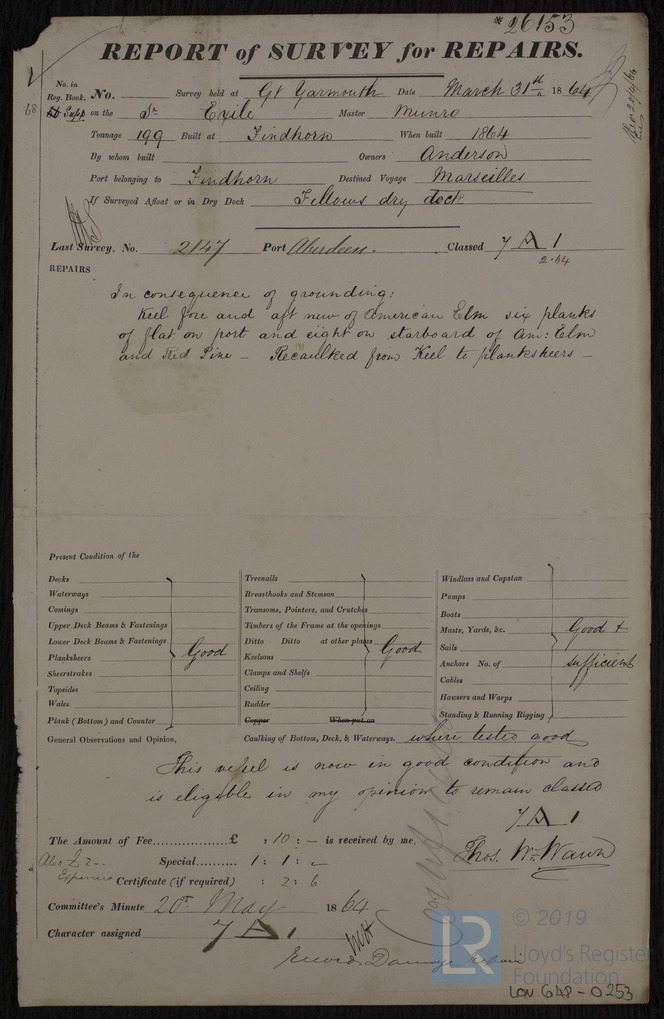 *26153
REPORT of SURVEY for REPAIRS.
No. in Reg. Book. No. Survey held at Gt Yarmouth Date March 31st 1864
68 Supp on the Sr Exile Master Munro
Tonnage 199 Built at Findhorn When built 1864
By whom built Owners Anderson
Port belonging to Findhorn Destined Voyage Marseilles
If Surveyed Afloat or in Dry Dock Fellows dry dock
Last Survey, No. 2147 Port Aberdeen. Classed 7 A 1
2.64
REPAIRS
In consequence of grounding:
Keel fore and aft new of American Elm six planks
of flat on port and eight on starboard of Am: Elm
and Red Pine – Recaulked from Keel to planksheers –
Present Condition of the
Decks
Waterways
Comings
Upper Deck Beams & Fastenings
Lower Deck Beams & Fastenings
Planksheers
Sheerstrakes
Topsides
Wales
Plank (Bottom) and Counter
Good
Treenails
Breasthooks and Stemson
Transoms, Pointers, and Crutches
Timbers of the Frame at the openings
Ditto Ditto at other places
Keelsons
Clamps and Shelfs
Ceiling
Rudder
Copper When put on
Good
Windlass and Capstan
Pumps
Boats
Masts, Yards, &c.
Sails
Anchors No. of
Cables
Hawsers and Warps
Standing & Running Rigging
Good +
sufficient
General Observations and Opinion, Caulking of Bottom, Deck, & Waterways. where tested good
This vessel is now in good condition and
is eligible in my opinion to remain classed
7 A 1
The Amount of Fee..................£ : 10 : – is received by me,
Special.......... 1 : 1 : –
Expenses Certificate (if required) : 2 : 6
Thos. Wm Wawn
Committee's Minute 20th May 1864
Character assigned 7 A 1
Record Damage Repair
© 2019
LR
Lloyd's Register
Foundation
LON 648-0253